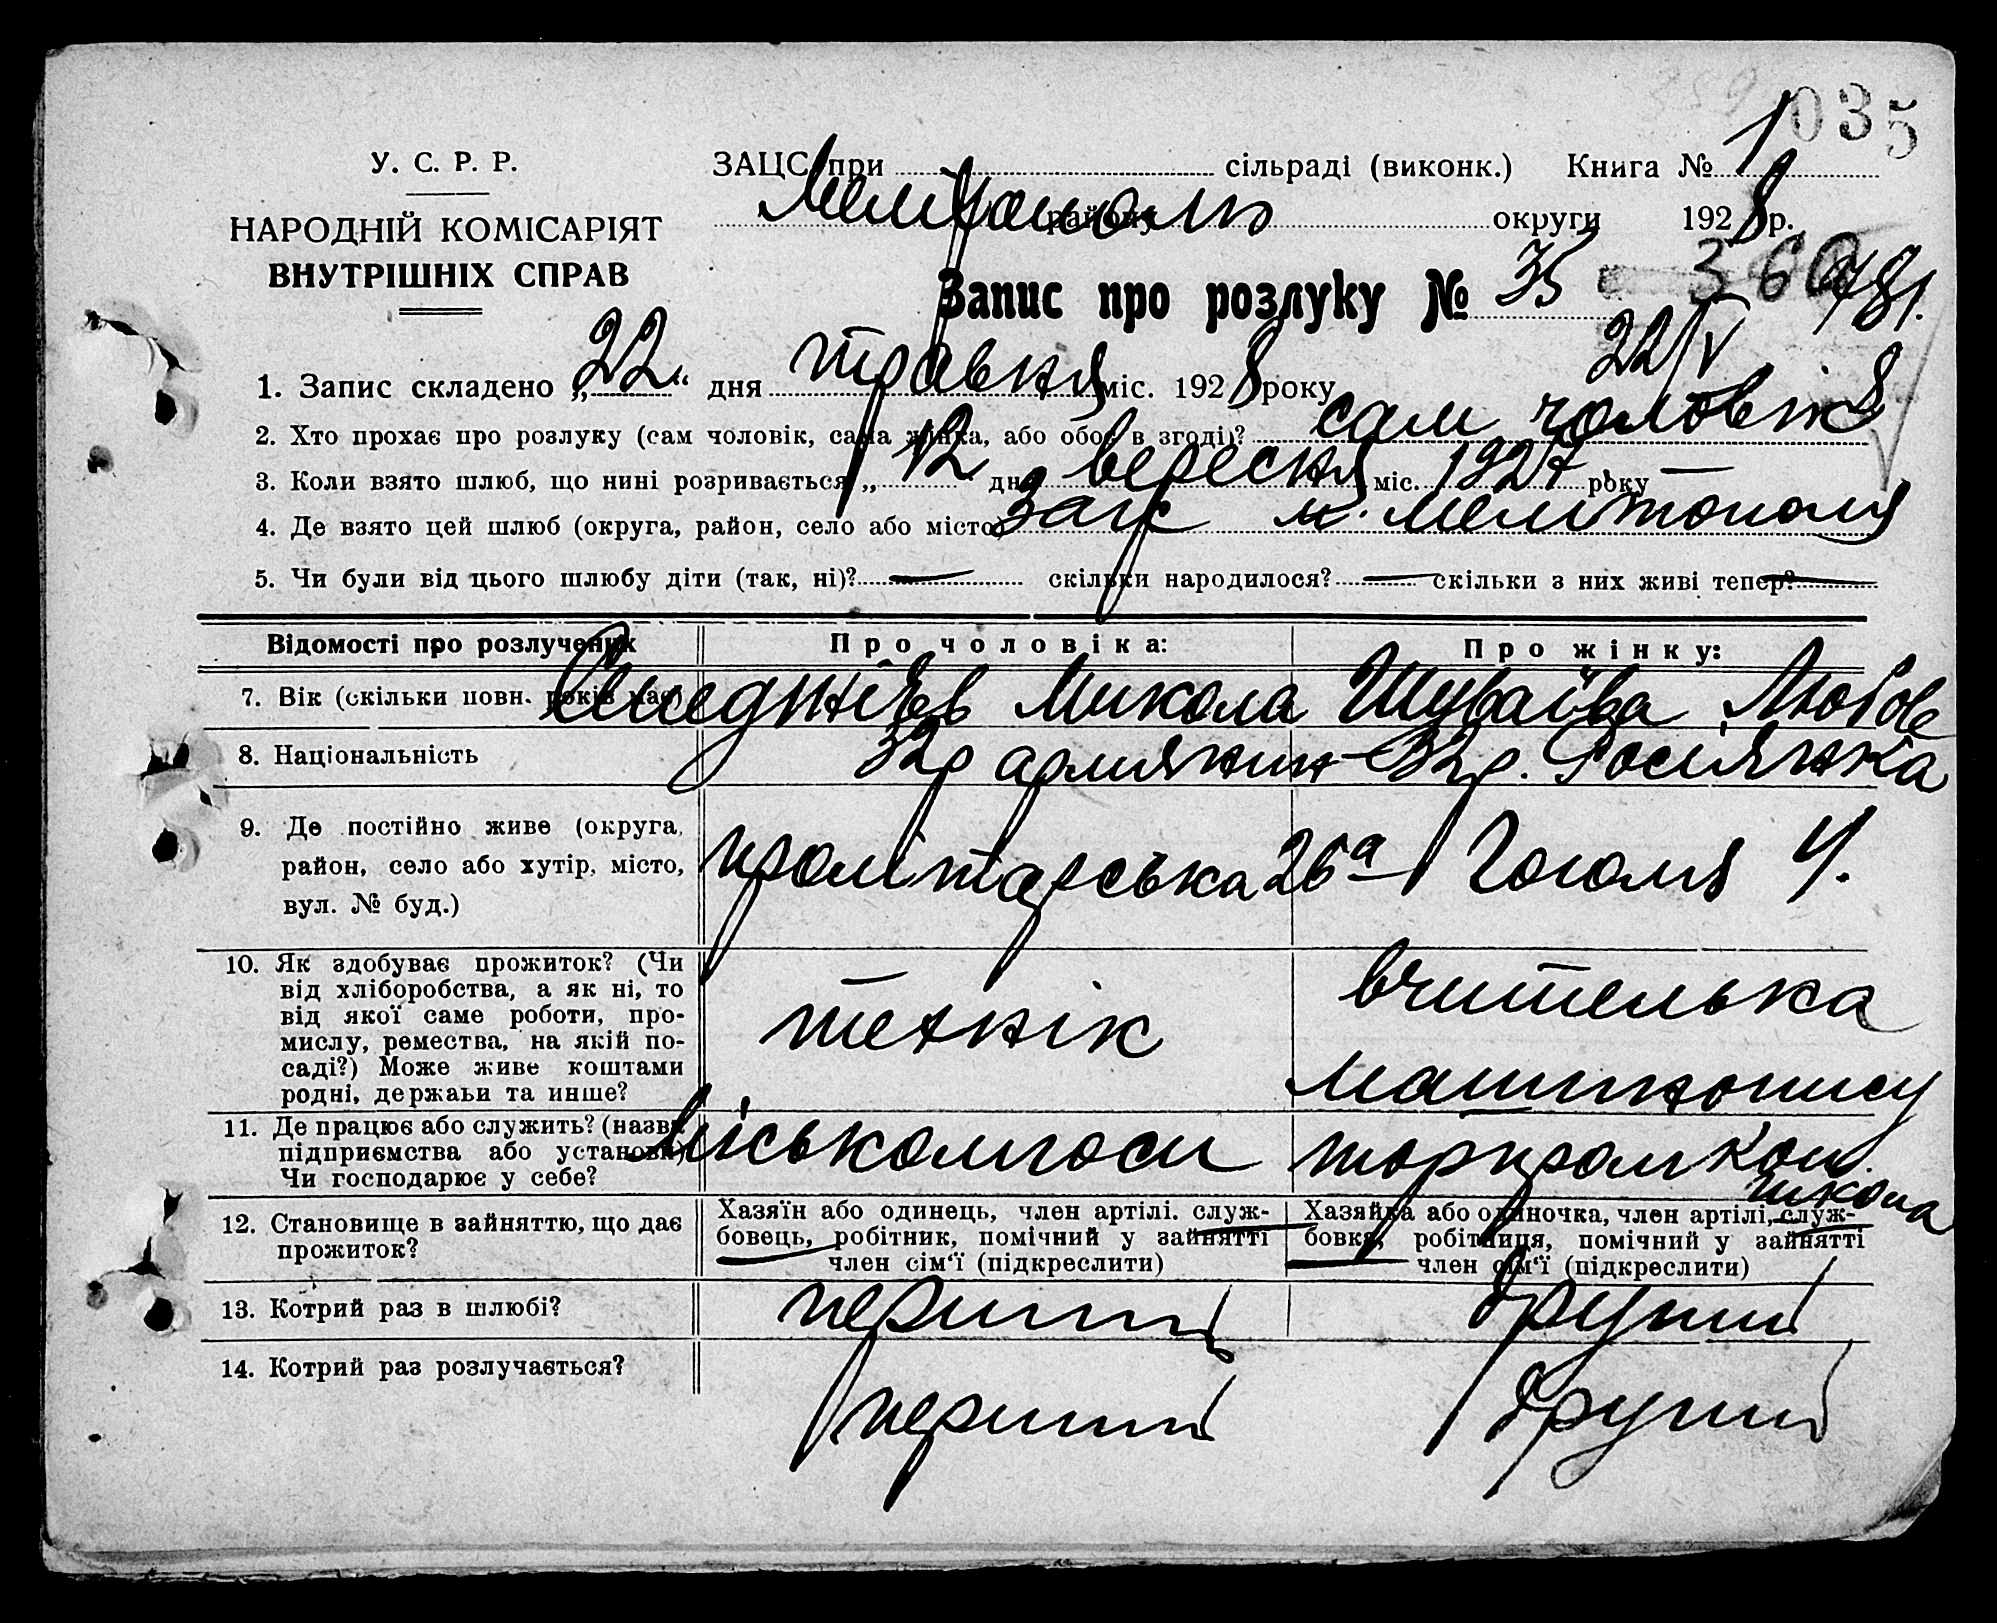 035
У. С. Р. Р.
НАРОДНІЙ КОМІСАРІЯТ
ВНУТРІШНІХ СПРАВ
ЗАЦС при сільраді (виконк.) Книга № 1
Мелітополю району округи 1928 р.
Запис про розлуку № 35 360 781.
22/V
1. Запис складено „22“ дня травня міс. 1928 року
2. Хто прохає про розлуку (сам чоловік, сама жінка, або обоє в згоді)? сам чоловік
3. Коли взято шлюб, що нині розривається „12“ дня вересня міс. 1927 року
4. Де взято цей шлюб (округа, район, село або місто) Загс м. Мелітополя
5. Чи були від цього шлюбу діти (так, ні)? — скільки народилося? — скільки з них живі тепер? —
Відомості про розлучених Про чоловіка: Про жінку:
7. Вік (скільки повн. років має) Микола Любов
8. Національність 32р армянин 32р. Росіянка
9. Де постійно живе (округа, район, село або хутір, місто, вул. № буд.) пролітарська 26а Гоголя 4.
10. Як здобуває прожиток? (Чи
від хліборобства, а як ні, то
від якої саме роботи, про-
мислу, ремества, на якій по-
саді?) Може живе коштами
родні, держави та инше?
технік
вчителька
машинопису
11. Де працює або служить? (назва
підприємства або установи)
Чи господарює у себе?
Міськомгосп
торгпром кол. школа
12. Становище в зайняттю, що дає
прожиток?
Хазяїн або одинець, член артілі, служ-
бовець, робітник, помічний у зайнятті
член сім'ї (підкреслити)
Хазяйка або одиночка, член артілі, служ-
бовка, робітниця, помічний у зайнятті
член сім'ї (підкреслити)
13. Котрий раз в шлюбі? перший другий
14. Котрий раз розлучається? перший другий